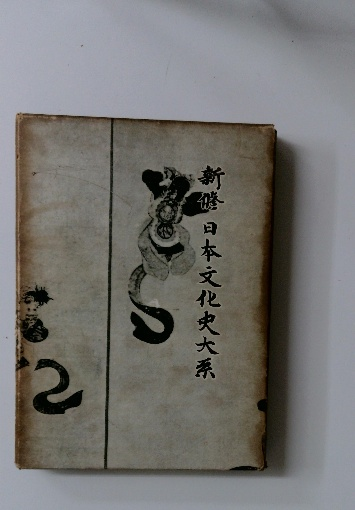 新修日本文化史大系